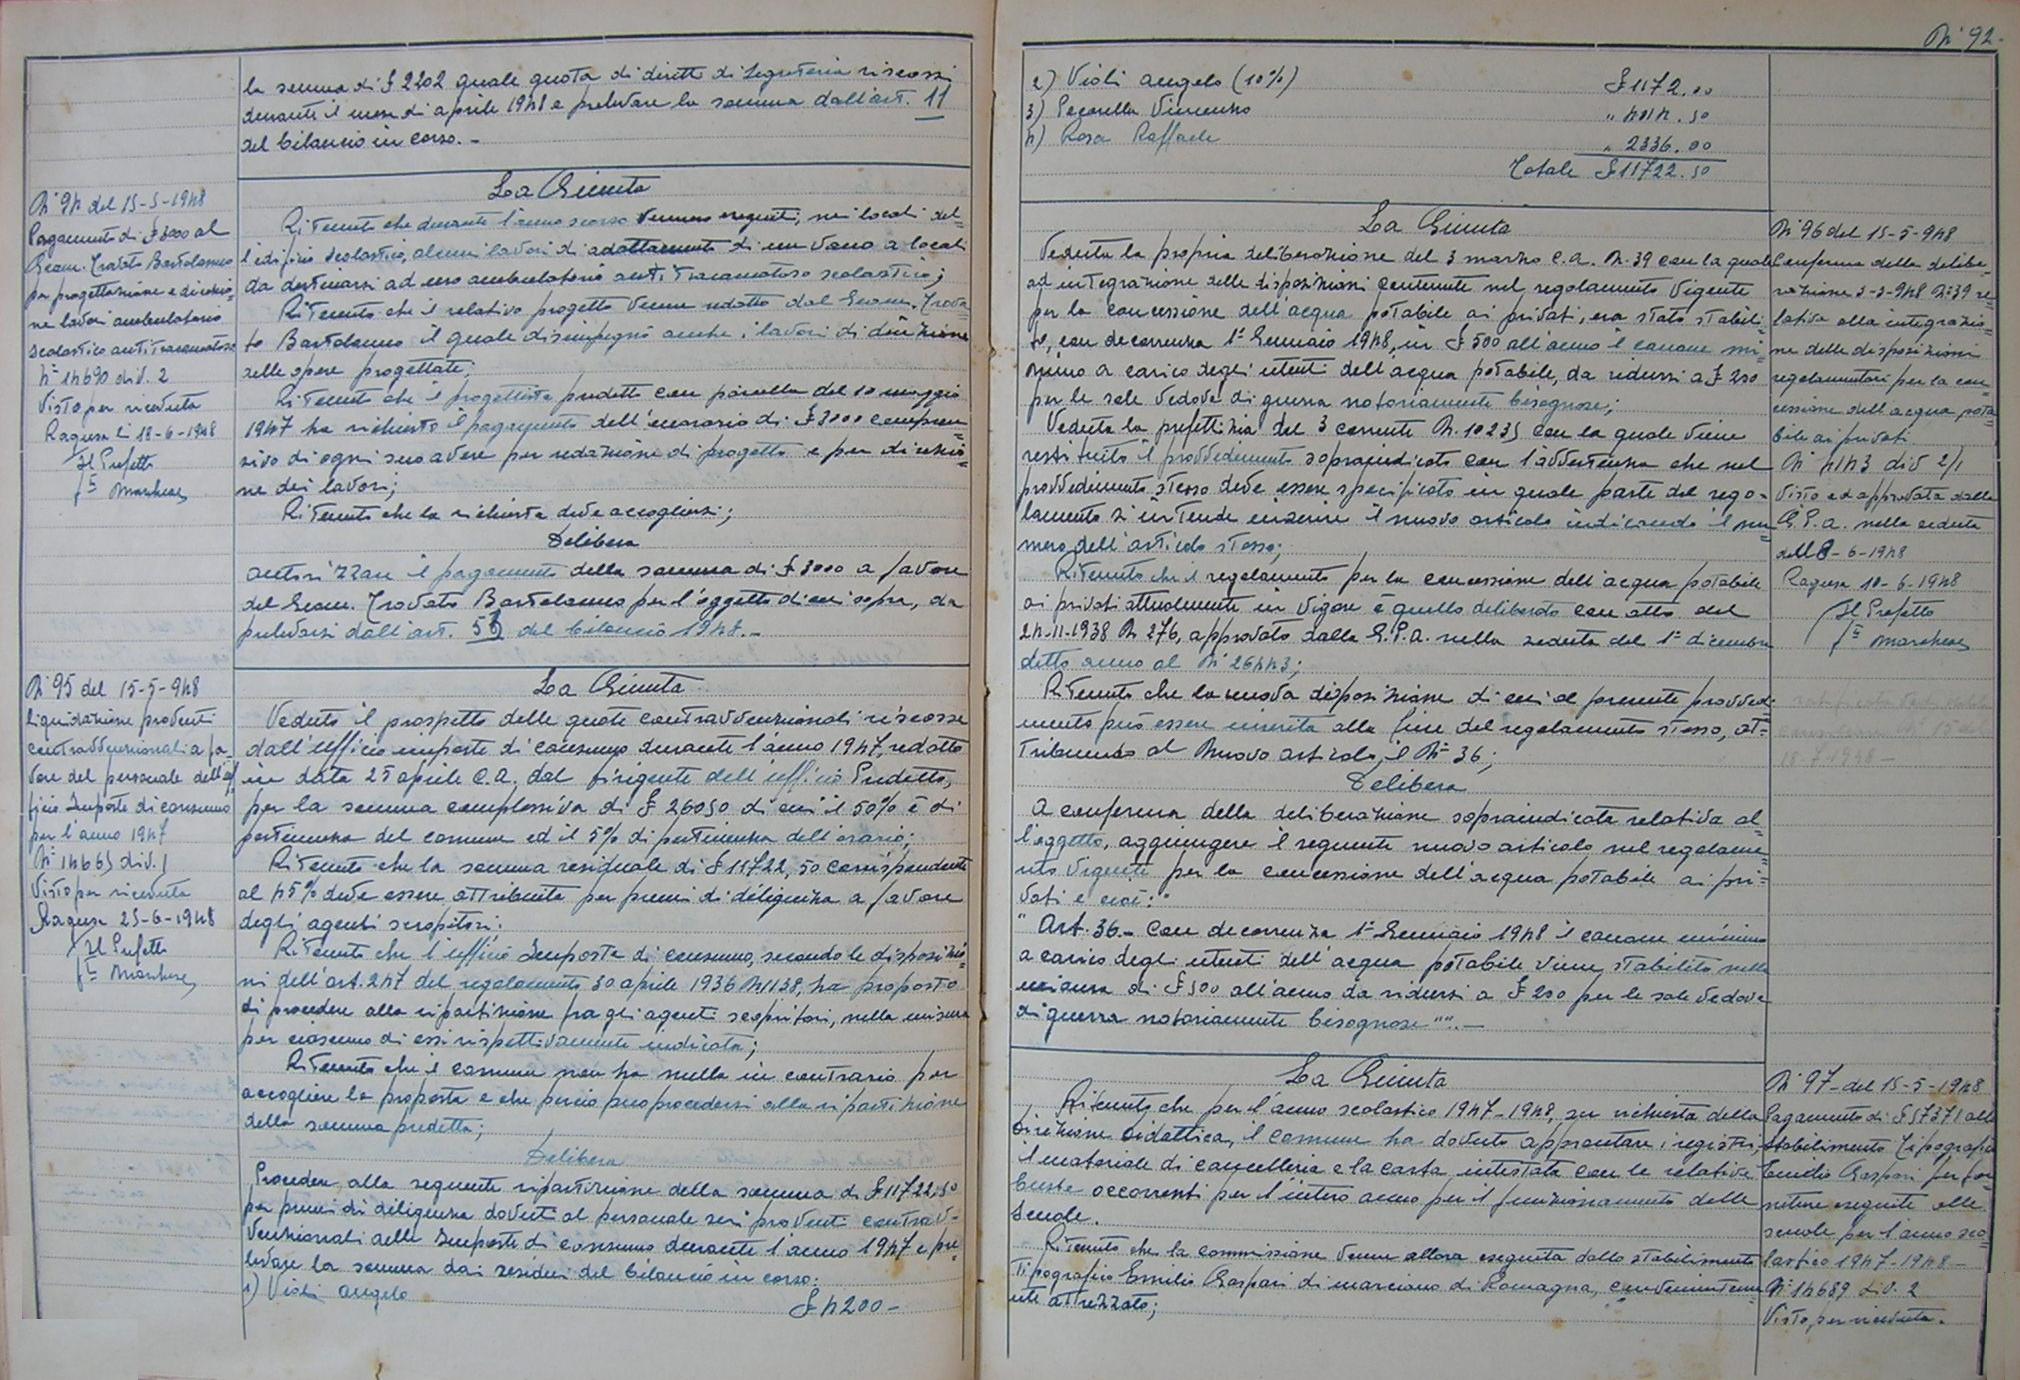 la somma di £ 2202 quale quota di diritti di segreteria riscossi
durante il mese di aprile 1948 e prelevare la somma dall'art. 11
del bilancio in corso. -
N° 94 del 15-5-1948
Pagamento di £ 3000 al
Geom. Trovato Bartolomeo
per progettazione e direzio=
ne lavori ambulatorio
scolastico antitracomatoso
N° 14690 div. 2
Visto per ricevuta
Ragusa li 18-6-1948
Il Prefetto
f.to Marchese
La Giunta
Ritenuto che durante l'anno scorso vennero eseguiti, nei locali del=
l'edificio scolastico, alcuni lavori di adattamento di un vano a locali
da destinarsi ad uso ambulatorio antitracomatoso scolastico;
Ritenuto che il relativo progetto venne redatto dal Geom. Trova=
to Bartolomeo il quale disimpegnò anche i lavori di direzione
delle opere progettate;
Ritenuto che il progettista predetto con parcella del 10 maggio
1947 ha richiesto il pagamento dell'onorario di £ 3000 compren=
sivo di ogni suo avere per redazione di progetto e per direzio=
ne dei lavori;
Ritenuto che la richiesta deve accogliersi;
Delibera
autorizzare il pagamento della somma di £ 3000 a favore
del Geom. Trovato Bartolomeo per l'oggetto di cui sopra, da
prelevarsi dall'art. del bilancio 1948. -
N° 95 del 15-5-948
Liquidazione proventi
contravvenzionali a fa=
vore del personale dell'uf=
ficio Imposte di consumo
per l'anno 1947
N° 14665 div. 1
Visto per ricevuta
Ragusa 25-6-1948
Il Prefetto
f.to Marchese
La Giunta
Veduto il prospetto delle quote contravvenzionali riscosse
dall'ufficio imposte di consumo durante l'anno 1947, redatto
in data 25 aprile c.a. dal dirigente dell'ufficio Predetto,
per la somma complessiva di £ 26050 di cui il 50% è di
pertinenza del comune ed il 5% di pertinenza dell'erario;
Ritenuto che la somma residuale di £ 11722,50 corrispondente
al 45% deve essere attribuita per premi di diligenza a favore
degli agenti scopritori;
Ritenuto che l'ufficio Imposte di consumo, secondo le disposizio=
ni dell'art. 247 del regolamento 30 aprile 1936 N. 1138, ha proposto
di procedere alla ripartizione fra gli agenti scopritori, nella misura
per ciascuno di essi rispettivamente indicata;
Ritenuto che il comune non ha nulla in contrario per
accogliere la proposta e che perciò può procedersi alla ripartizione
della somma predetta;
Delibera
Procedere alla seguente ripartizione della somma di £ 11722,50
per premi di diligenza dovuti al personale sui proventi contrav-
venzionali delle Imposte di consumo durante l'anno 1947 e pre=
levare la somma dai residui del bilancio in corso:
1) Violi Angelo £ 4200 -
N° 92 -
2) Violi Angelo (10%) £ 1172.00
3) Pecorella Vincenzo " 4014.50
4) Rosa Raffaele " 2336.00
Totale £ 11722.50
La Giunta
Veduta la propria deliberazione del 3 marzo c.a. N. 39 con la quale
ad integrazione delle disposizioni contenute nel regolamento vigente
per la concessione dell'acqua potabile ai privati, era stato stabili=
to, con decorrenza 1° Gennaio 1948, in £ 500 all'anno il canone mi=
nimo a carico degli utenti dell'acqua potabile, da ridursi a £ 250
per le sole vedove di guerra notoriamente bisognose;
Veduta la prefettizia del 3 corrente N. 10235 con la quale viene
restituito il provvedimento sopraindicato con l'avvertenza che nel
provvedimento stesso deve essere specificato in quale parte del rego-
lamento s'intende inserire il nuovo articolo indicando il nu=
mero dell'articolo stesso;
Ritenuto che il regolamento per la concessione dell'acqua potabile
ai privati attualmente in vigore è quello deliberato con atto del
24-11-1938 N 276, approvato dalla G.P.A. nella seduta del 1° dicembre
detto anno al N° 26443;
Ritenuto che la nuova disposizione di cui al presente provvedi=
mento può essere inserita alla fine del regolamento stesso, at=
tribuendo al nuovo articolo, il N° 36;
Delibera
A conferma della deliberazione sopraindicata relativa al=
l'oggetto, aggiungere il seguente nuovo articolo nel regolame=
nto vigente per la concessione dell'acqua potabile ai pri=
vati e cioè: "
" Art. 36 - Con decorrenza 1° Gennaio 1948 il canone minimo
a carico degli utenti dell'acqua potabile viene stabilito nella
misura di £ 500 all'anno da ridursi a £ 250 per le sole vedove
di guerra notoriamente bisognose "". -
N° 96 del 15-5-948
Conferma della delibe=
razione 3-3-948 N° 39 re=
lativa alla integrazio=
ne delle disposizioni
regolamentari per la con
cessione dell'acqua pota
bile ai privati
N° 4143 div 2/1
Visto ed approvata dalla
G.P.A. nella seduta
dell'8-6-1948
Ragusa 10-6-1948
Il Prefetto
f.to Marchese
La Giunta
Ritenuto che per l'anno scolastico 1947-1948, su richiesta della
Direzione Didattica, il comune ha dovuto apprestare i registri,
il materiale di cancelleria e la carta intestata con le relative
buste occorrenti per l'intero anno per il funzionamento delle
scuole.
Ritenuto che la commissione venne allora eseguita dallo stabilimento
Tipografico Emilio Gaspari di Marciano di Romagna, convenienteme=
nte attrezzato;
N° 97 - del 15-5-1948
Pagamento di £ 57371 allo
stabilimento Tipografico
Emilio Gaspari per for=
niture eseguite alle
scuole per l'anno sco=
lastico 1947-1948 -
N° 14689 div. 2
Visto, per ricevuta.